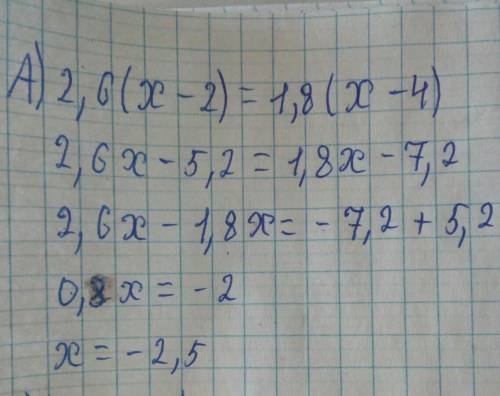 А) 2,6(x-2)=1,8(x-4)
2,6x-5,2=1,8x-7,2
2,6x-1,8x=-7,2+5,2
0,8x=-2
x=-2,5